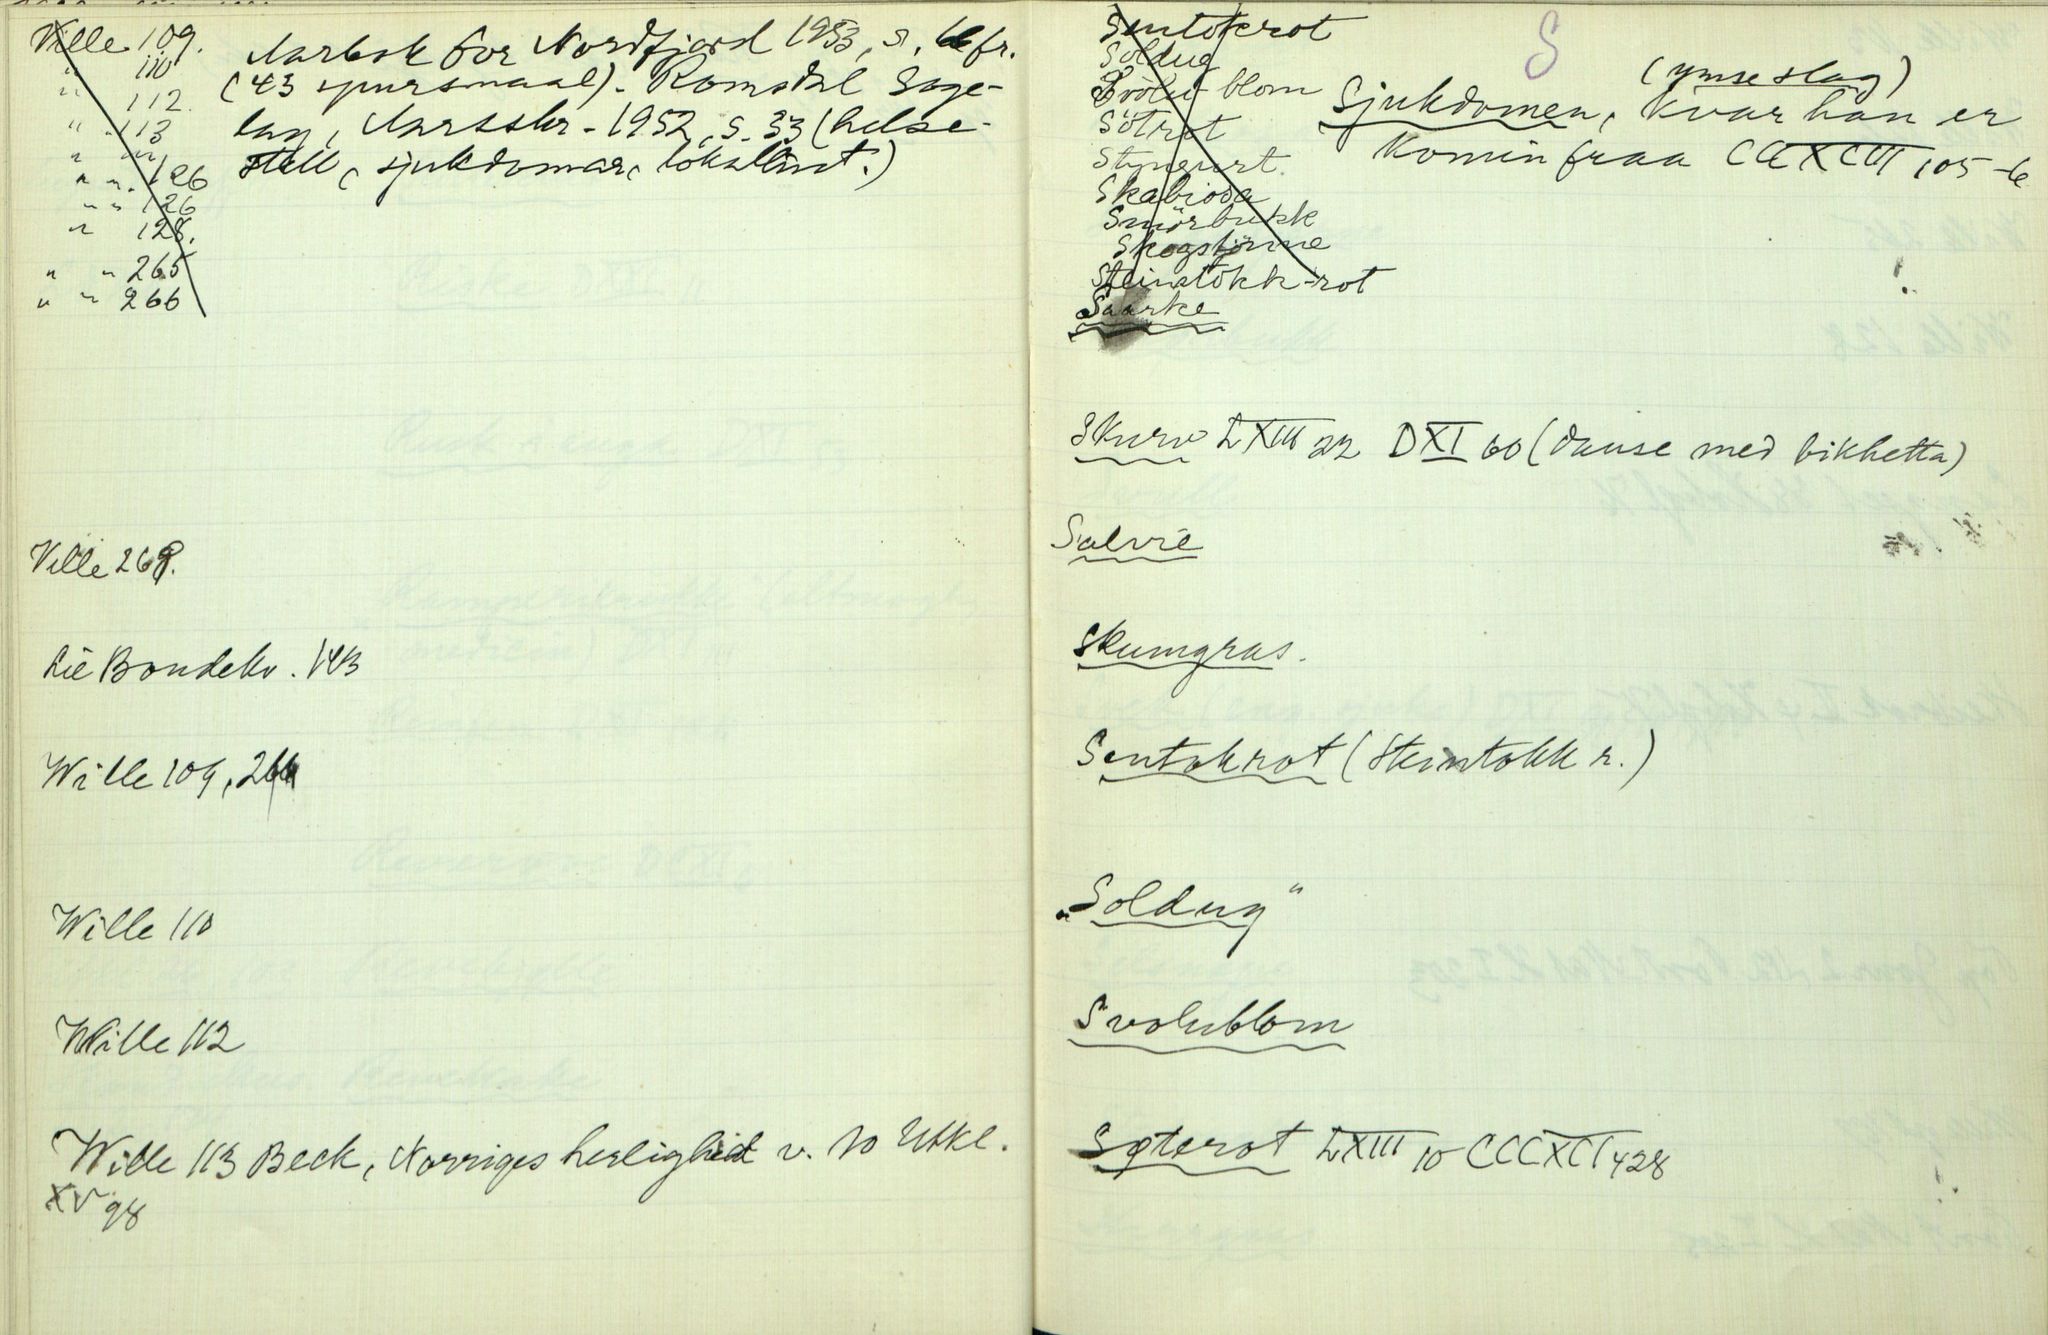 Wille 109.
" 110
" 112
" 113
" "
" ". 126
" " 126
" 128.
" " 265
" " 266
Aarbok for Nordfjord 1953, s. fr.
(43 spursmaal). Romsdal Soge-
lag, Aarsskr. 1952, s. 33 (helse-
stell, sjukdomar, lökjkunst.)
Wille 268.
Lie Bondekv. 143
Wille 109, 266
Wille 110
Wille 112
Wille 113 Beck, Norriges herlighed v. No Utkl.
XV 98
S
Sentokrot
Soldug
Svolu blom
Sötrot
Styvurt.
Skabiosa
Smörbukk
Skogstjerne
Steinstokk-rot
Saarke
(ymse slag)
Sjukdomen, kvar han er
komin fraa CCXCVI 105-6
Skurv LXIII 22 DXI 60 (danse med bikhetta)
Salvie
Skumgras.
Sentokrot (Steintokk r.)
"Soldug"
Svolublom
Søterot LXIII 10 CCCXCI 428